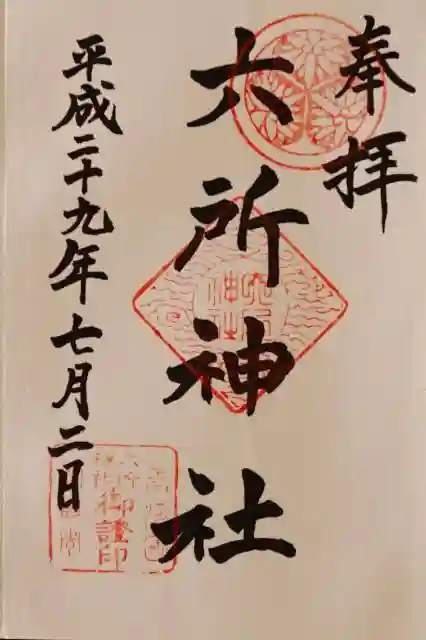 奉拝
六所神社
平成二十九年七月二日
六所
神社
御證印